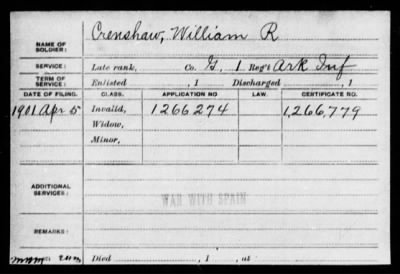 Crenshaw, William R
NAME OF SOLDIER:
SERVICE: Late rank, Co. G, 1 Reg't Ark Inf
TERM OF SERVICE: Enlisted , 1 Discharged , 1
DATE OF FILING. CLASS. APPLICATION NO LAW. CERTIFICATE NO.
1901 Apr 5 Invalid, 1266274 1,266,779
Widow,
Minor,
ADDITIONAL SERVICES:
WAR WITH SPAIN
REMARKS:
Died , 1 , at